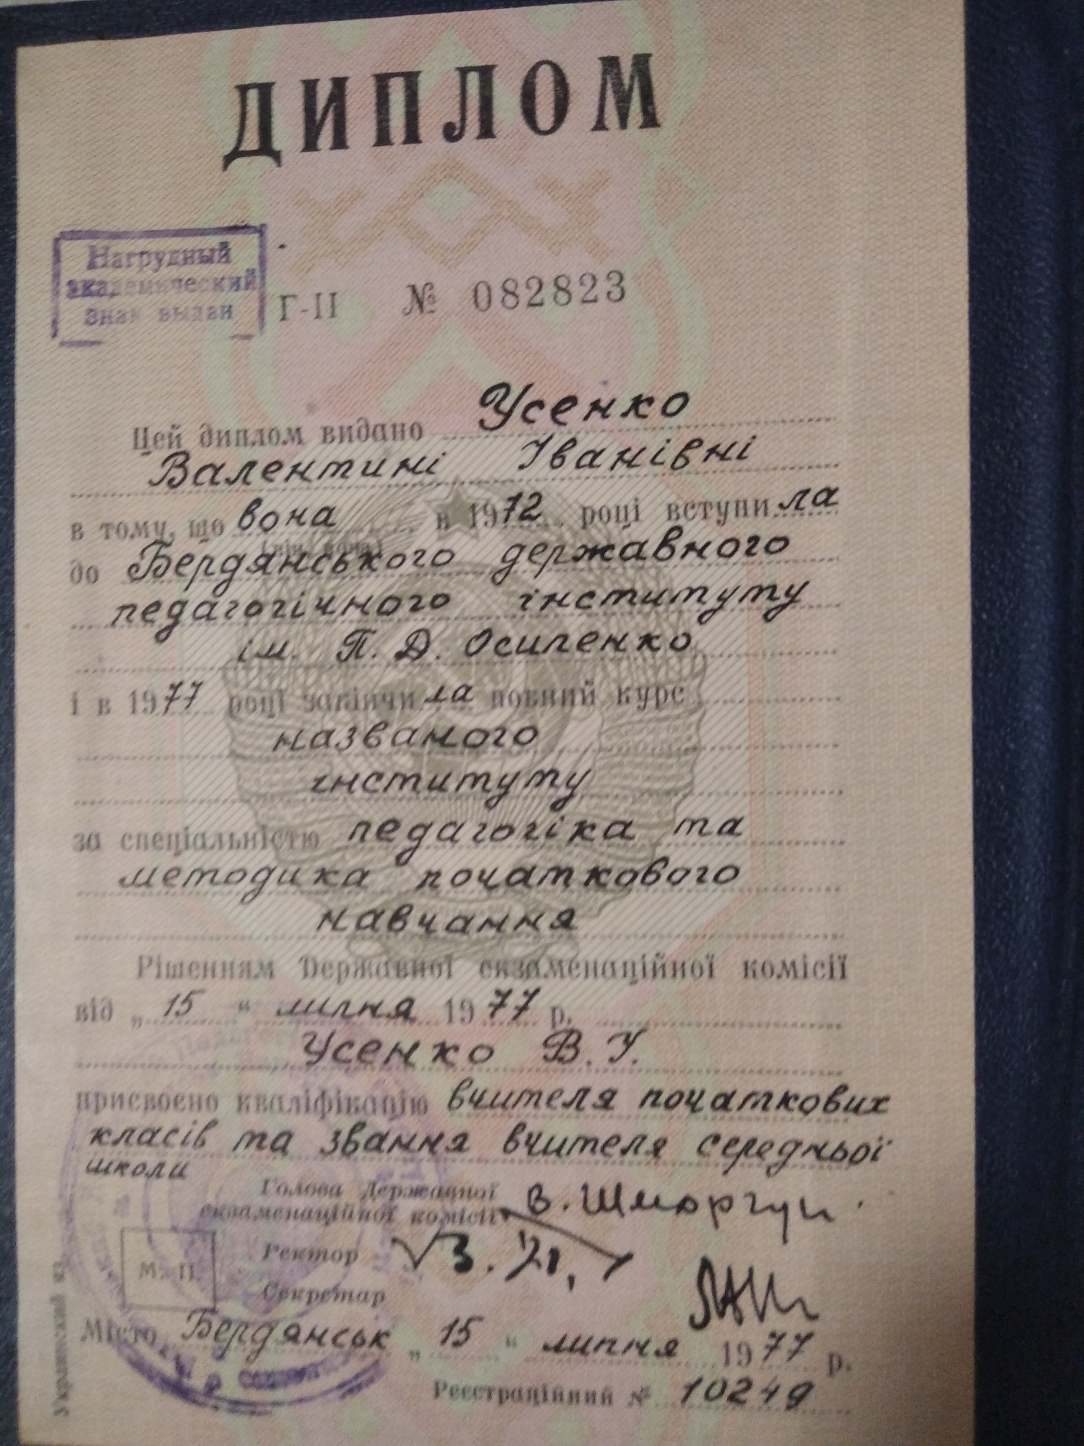 ДИПЛОМ
Нагрудный
академический
знак выдан
Г-II № 082823
Цей диплом видано Усенко
Валентині Іванівні
в тому, що вона в 1972 році вступила
до Бердянського державного
педагогічного інституту
ім. П. Д. Осипенко
і в 1977 році закінчила повний курс
названого
інституту
за спеціальністю педагогіка та
методика початкового
навчання
Рішенням Державної екзаменаційної комісії
від „15“ липня 1977 р.
Усенко В. І.
присвоєно кваліфікацію вчителя початкових
класів та звання вчителя середньої
школи
Голова Державної
екзаменаційної комісії В. Шморгун
Ректор
Секретар
М. П.
Місто Бердянськ „15“ липня 1977 р.
Реєстраційний № 10249
Украинский яз.